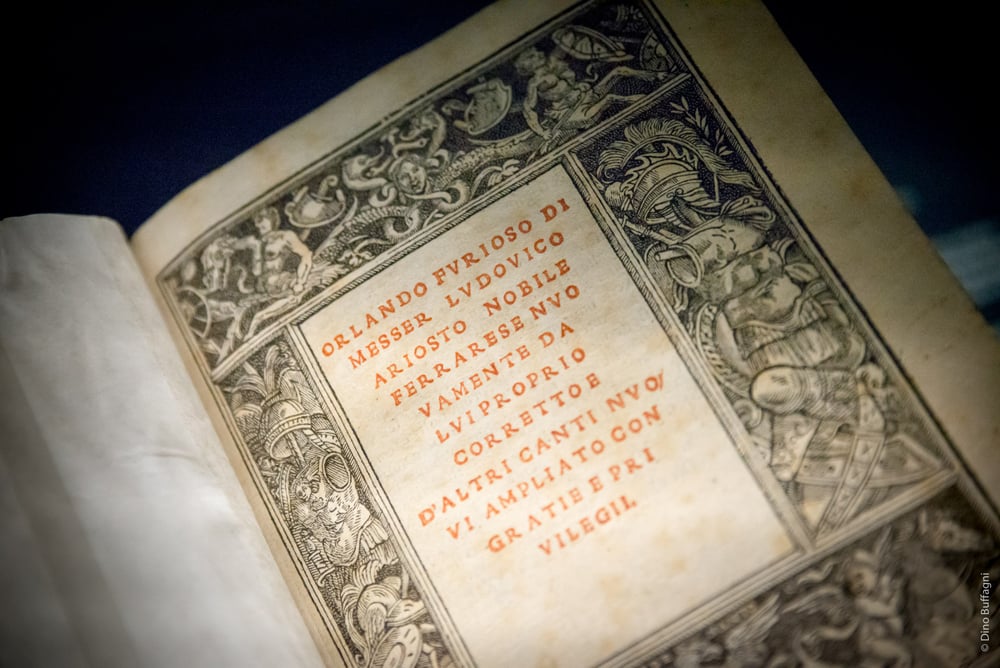 ORLANDO FVRIOSO DI
MESSER LVDOVICO
ARIOSTO NOBILE
FERRARESE NVO
VAMENTE DA
LVI PROPRIO
CORRETTO E
D'ALTRI CANTI NVO/
VI AMPLIATO CON
GRATIE E PRI
VILEGII
© Dino Buffagni